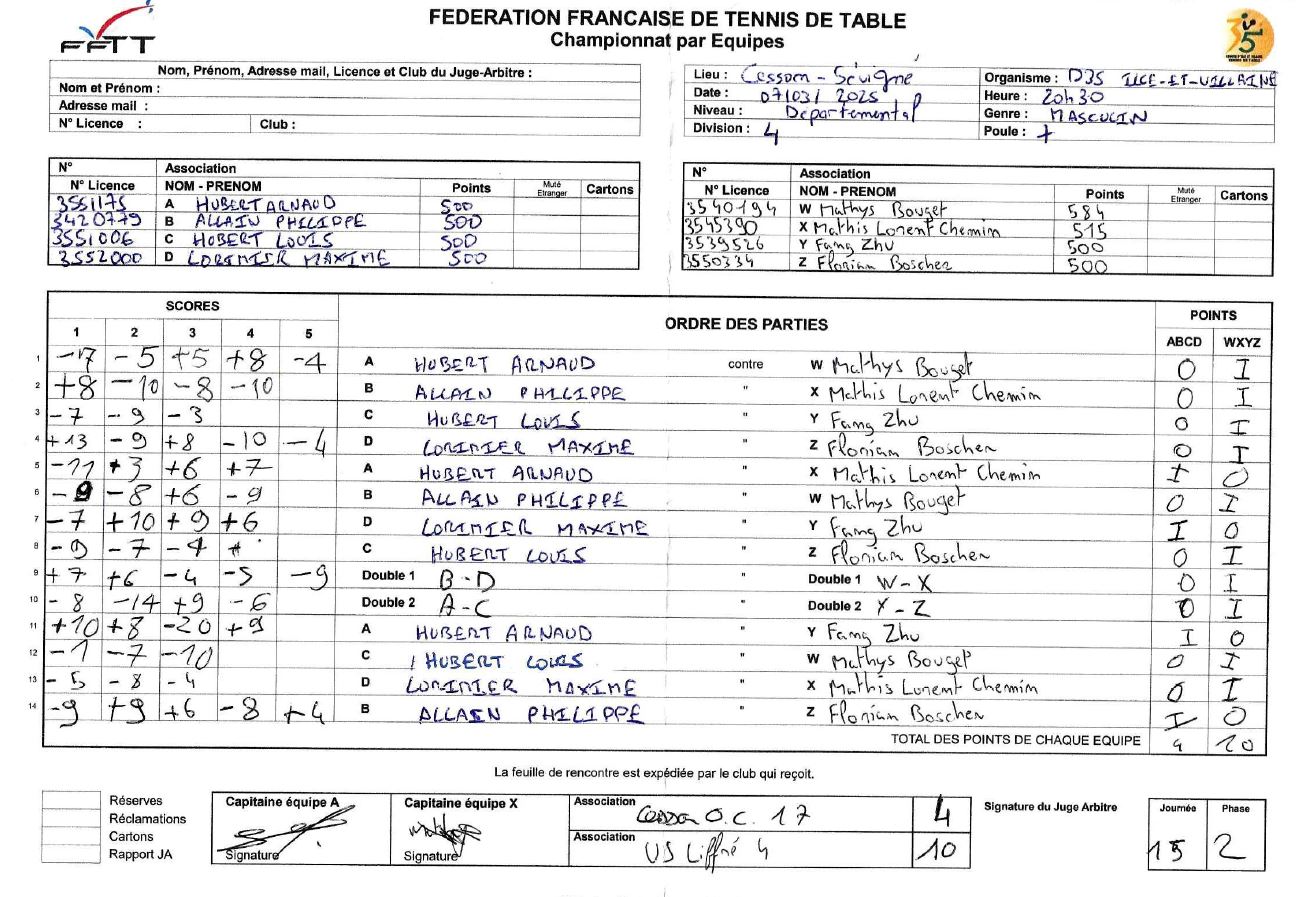 FEDERATION FRANCAISE DE TENNIS DE TABLE
Championnat par Equipes
FFTT
Nom, Prénom, Adresse mail, Licence et Club du Juge-Arbitre :
Nom et Prénom :
Adresse mail :
N° Licence : Club :
Lieu : Cesson - Sévigné
Date : 07/03/ 2025
Niveau : Départemental
Division : 4
Organisme : D35 ILLE-ET-VILLAINE
Heure : 20h30
Genre : MASCULIN
Poule :
N° Association
N° Licence NOM - PRENOM Points Muté Etranger Cartons
3551175 A HUBERT ARNAUD 500
3420779 B ALLAIN PHILIPPE 500
3551006 C HUBERT LOUIS 500
3552000 D LORIMIER MAXIME 500
N° Association
N° Licence NOM - PRENOM Points Muté Etranger Cartons
3540194 W Mathys Bouget 584
3545390 X Mathis Lorent Chemin 515
3539526 Y Fang Zhu 500
3550334 Z Florian Boscher 500
SCORES ORDRE DES PARTIES POINTS
1 2 3 4 5 ABCD WXYZ
1 -7 -5 +5 +8 -4 A HUBERT ARNAUD contre W Mathys Bouget 0 I
2 +8 -10 -8 -10 B ALLAIN PHILIPPE " X Mathis Lorent Chemin 0 I
3 -7 -9 -3 C HUBERT LOUIS " Y Fang Zhu 0 I
4 +13 -9 +8 -10 -4 D LORIMIER MAXIME " Z Florian Boscher 0 I
5 -11 +3 +6 +7 A HUBERT ARNAUD " X Mathis Lorent Chemin I 0
6 -9 -8 +6 -9 B ALLAIN PHILIPPE " W Mathys Bouget 0 I
7 -7 +10 +9 +6 D LORIMIER MAXIME " Y Fang Zhu I 0
8 -9 -7 -4 C HUBERT LOUIS " Z Florian Boscher 0 I
9 +7 +6 -4 -5 -9 Double 1 B-D " Double 1 W-X 0 I
10 -8 -14 +9 -6 Double 2 A-C " Double 2 Y-Z 0 I
11 +10 +8 -20 +9 A HUBERT ARNAUD " Y Fang Zhu I 0
12 -1 -7 -10 C HUBERT LOUIS " W Mathys Bouget 0 I
13 -5 -8 -4 D LORIMIER MAXIME " X Mathis Lorent Chemin 0 I
14 -9 +9 +6 -8 +4 B ALLAIN PHILIPPE " Z Florian Boscher I 0
TOTAL DES POINTS DE CHAQUE EQUIPE 4 10
La feuille de rencontre est expédiée par le club qui reçoit.
Réserves
Réclamations
Cartons
Rapport JA
Capitaine équipe A
Signature
Capitaine équipe X
Signature
Association Cesson O.C. 17 4
Association US Liffré 4 10
Signature du Juge Arbitre
Journée Phase
15 2